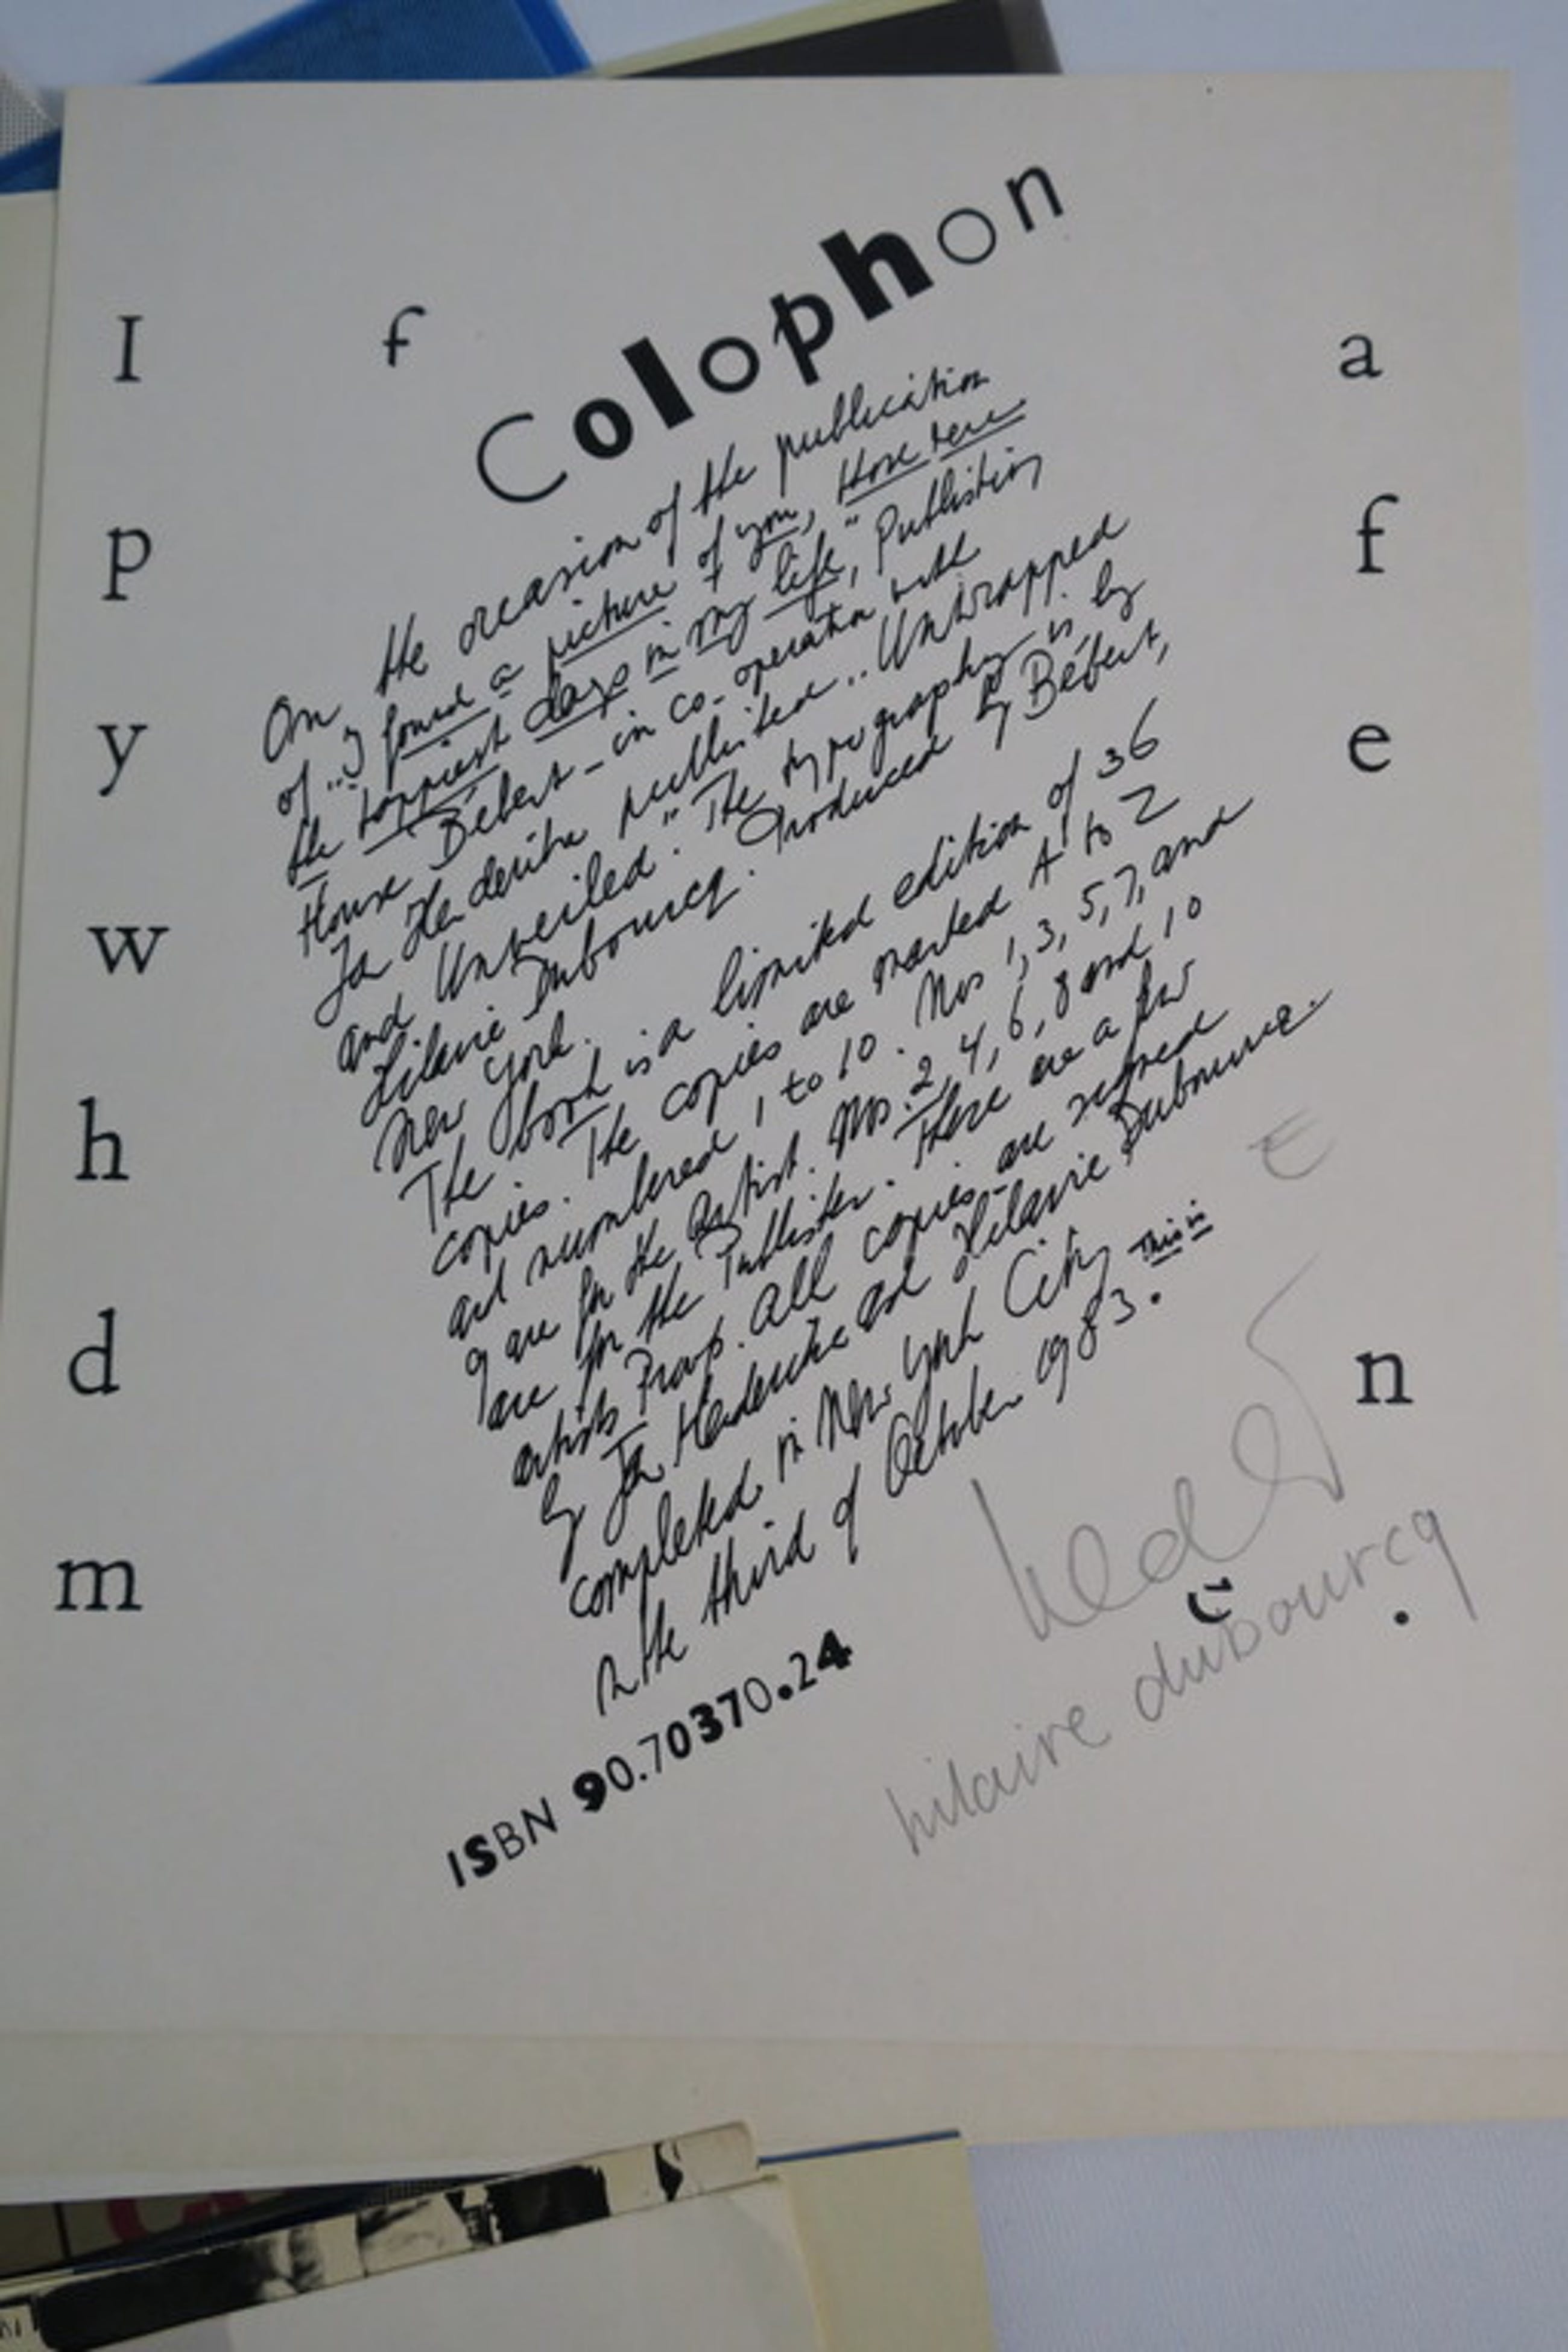 Colophon
I f a
p f
y e
w
h
d n
m c .
On the occasion of the publication
of „I found a picture of you, those were
the happiest days in my life“, Publishing
House Bébert - in co-operation with
Ja Hendericke published „Unwrapped
and Unveiled.“ The typography is by
Hilarie Dubourcq. Produced by Bébert,
New York.
The book is a limited edition of 36
copies. The copies are marked A to Z
and numbered 1 to 10. Nos 1, 3, 5, 7, and
9 are for the Artist. Nos. 2, 4, 6, 8 and 10
are for the Publisher. There are a few
artists Proofs. All copies are signed
by and Hilarie Dubourcq.
completed in New York City This is
on the third of October 1983.
E
hilaire dubourcq
ISBN 90.70370.24